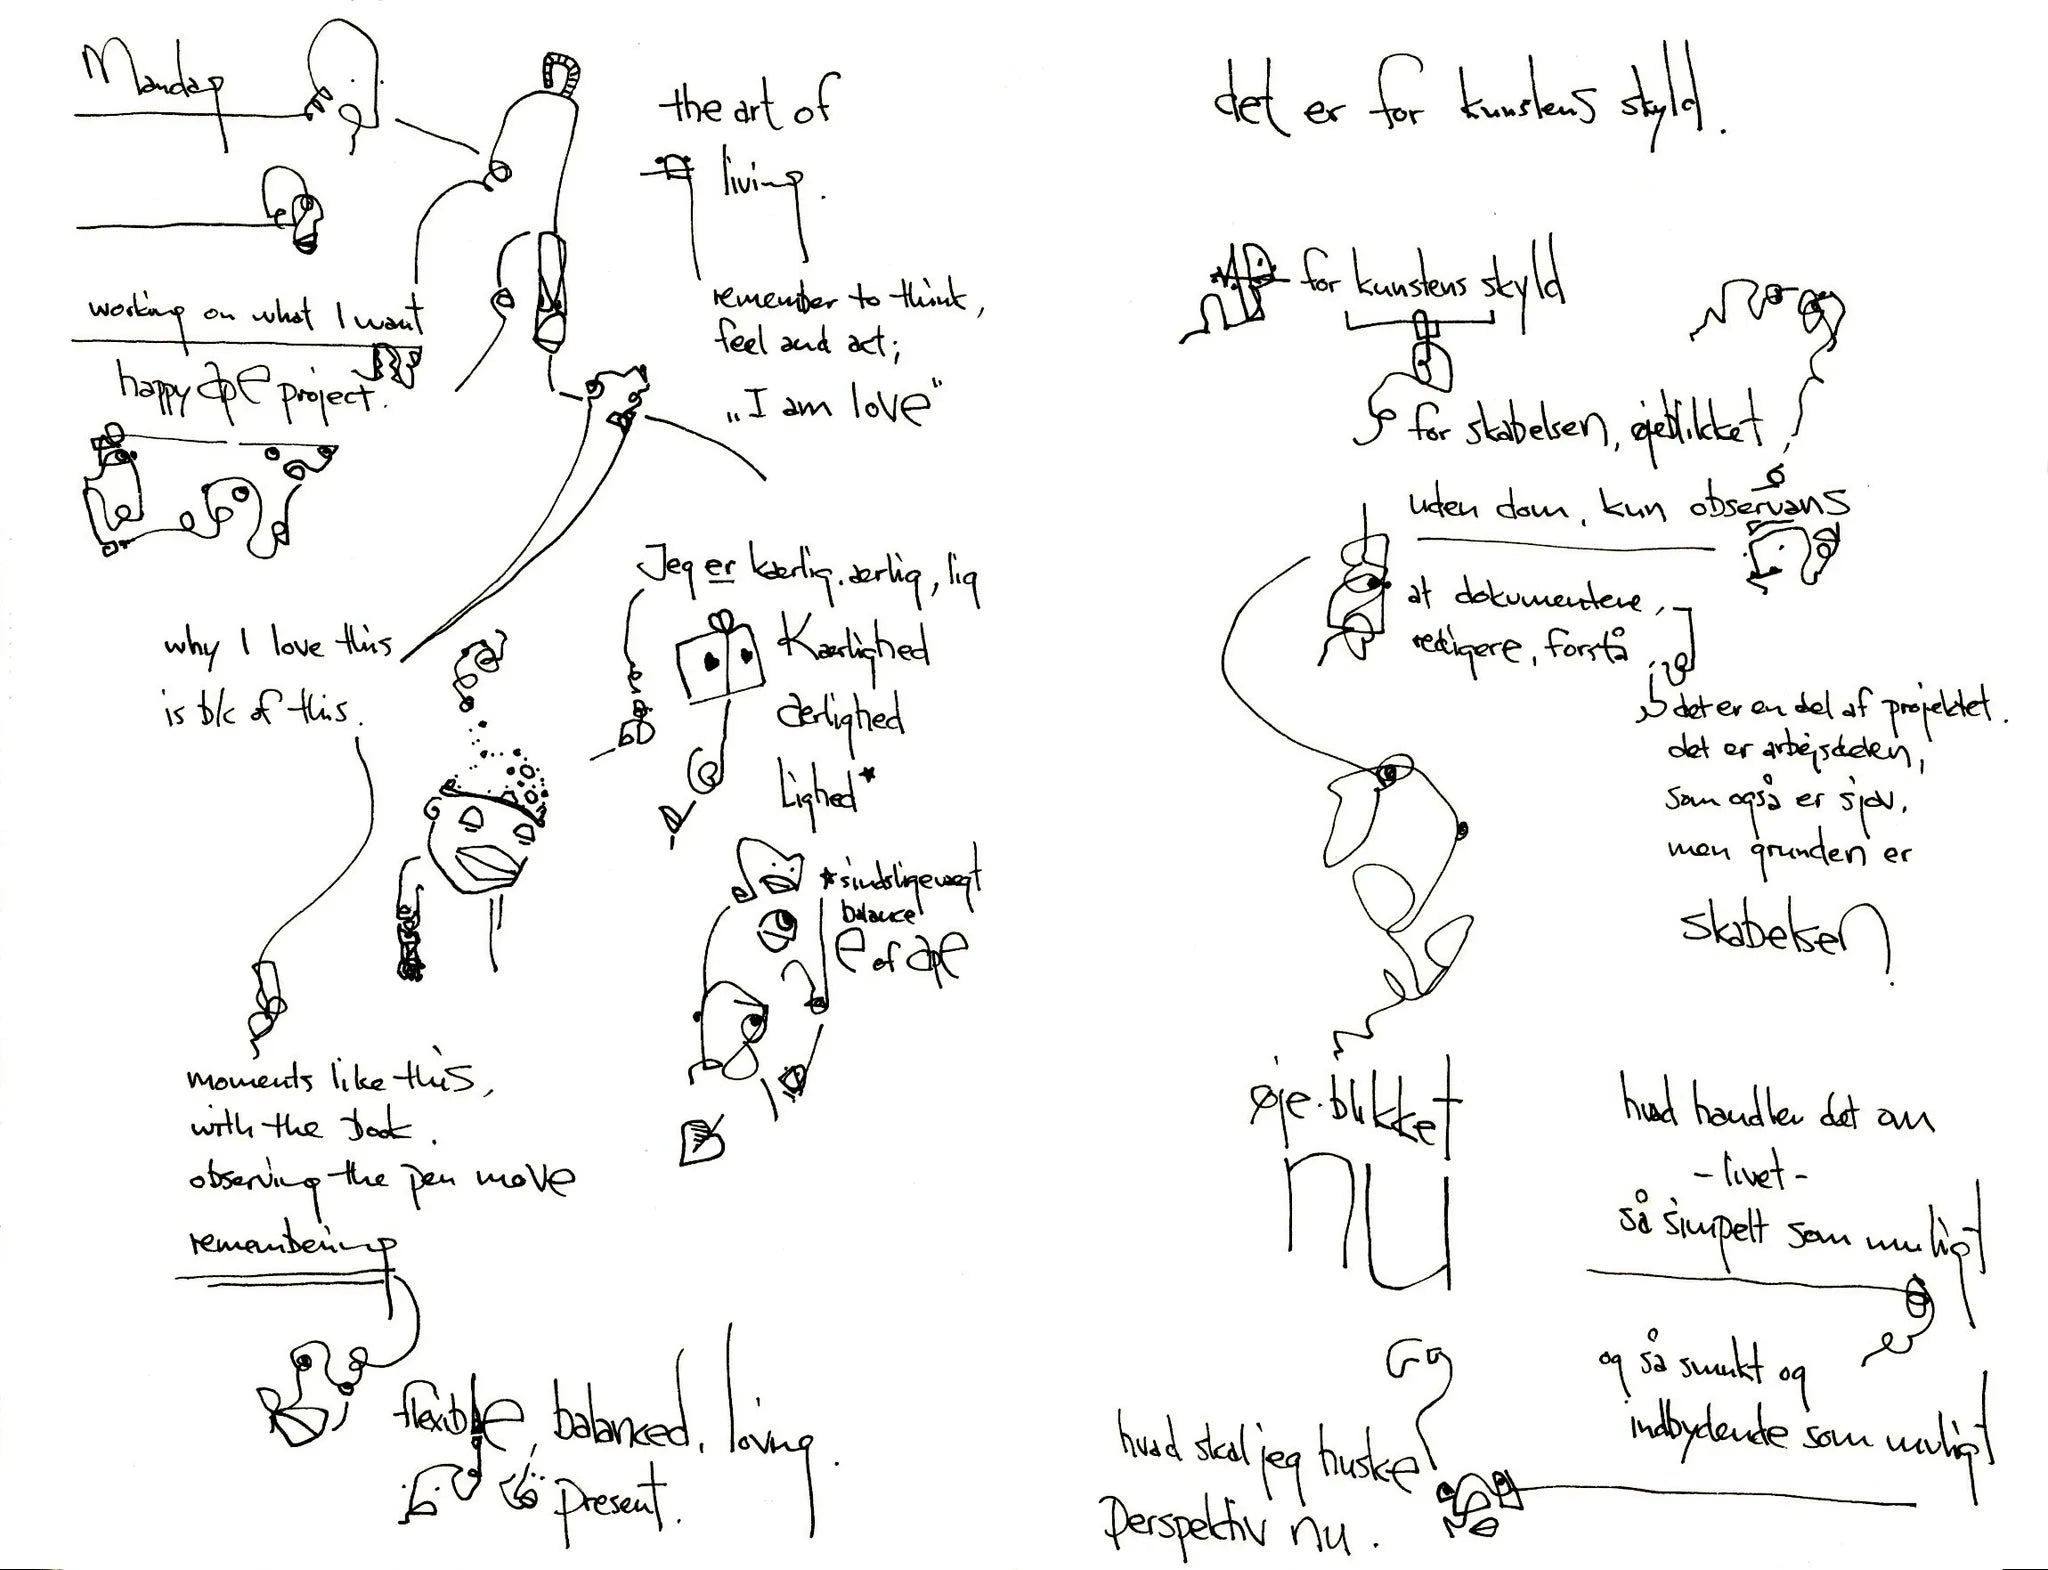 Mandag
working on what I want
happy ape project.
the art of
living.
remember to think,
feel and act;
„I am love"
Jeg er kærlig. ærlig, lig
Kærlighed
ærlighed
Lighed*
*sindsligevægt
balance
e of ape
why I love this
is b/c of this.
moments like this,
with the book.
observing the pen move
remembering
flexible, balanced, loving.
present.
det er for kunstens skyld.
for kunstens skyld
for skabelsen, øjeblikket
uden dom, kun observans
at dokumentere,
redigere, forstå
det er en del af projektet.
det er arbejdsdelen,
som også er sjov.
men grunden er
skabelsen.
øje-blikket
nu
hvad handler det om
-livet-
så simpelt som muligt
og så smukt og
indbydende som muligt
hvad skal jeg huske
Perspektiv nu.